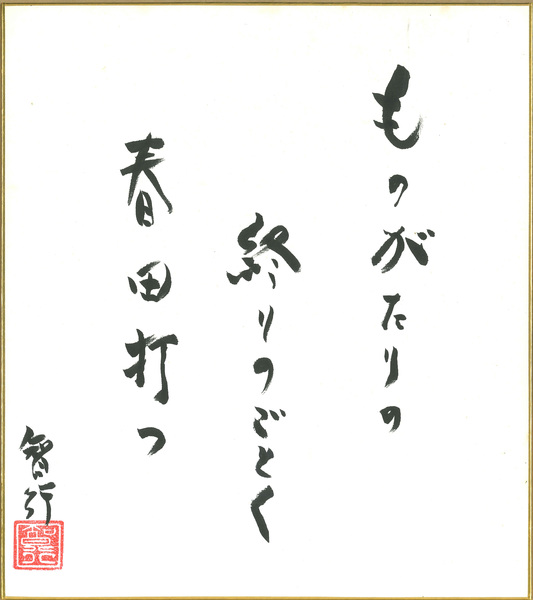 ものがたりの
終りのごとく
春田打つ
智行